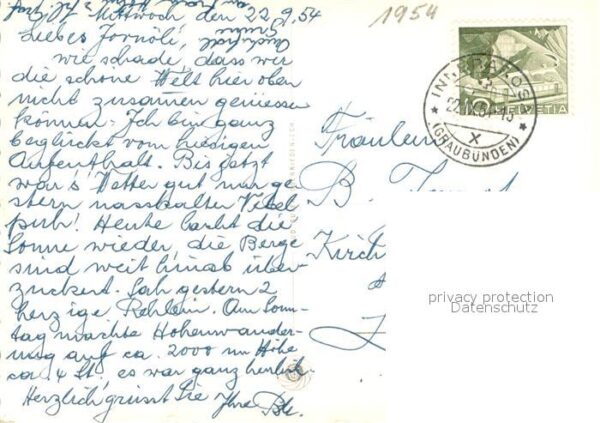 Mittwoch, den 22.9.54
1954
Liebes
wie schade, dass wir
die schöne Welt hier oben
nicht zusammen geniessen
können. Ich bin ganz
beglückt vom hiesigen
Aufenthalt. Bis jetzt
war's Wetter gut nur ge
stern nasskalter Nebel
Heute lacht die
Sonne wieder, die Berge
sind weit hinab über-
zuckert. Sah gestern 2
herzige Rehlein. Am Sonn-
tag machte Höhenwander-
ung auf ca. 2000 m Höhe
ca. 4 St. es war ganz herrlich.
Herzlich grüsst Sie Ihre
INNERAROSA
22.IX.54-13
X
(GRAUBÜNDEN)
HELVETIA
Fräulein
B.
Kirch
privacy protection
Datenschutz